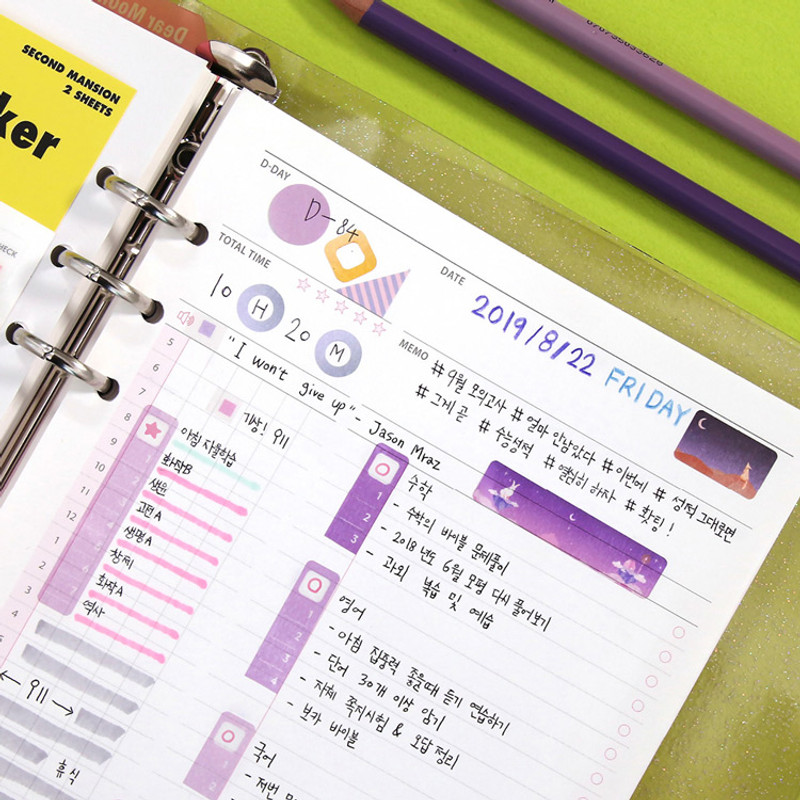 Dear Moon
SECOND MANSION
2 SHEETS
ker
D-DAY
D-84
TOTAL TIME
10 H 20 M
DATE
2019/8/22 FRIDAY
MEMO
#9월 모의고사 #얼마 안남았다 #이번에 # 성적 그대로면
#그게 곧 #수능성적 #열심히 하자 #홧팅!
"I won't give up" - Jason Mraz
5
6
7
8
9
10
11
12
1
2
3
4
5
기상!
아침 자율학습
화작B
생윤
고전A
생명A
창체
화작A
역사
휴식
1
2
3
수학
- 수학의 바이블 문제풀이
- 2018년도 6월 모평 다시 풀어보기
- 과외 복습 및 예습
1
2
3
4
영어
- 아침 집중력 좋을때 듣기 연습하기
- 단어 30개 이상 암기
- 자체 쪽지시험 & 오답 정리
- 보카 바이블
1
국어
- 저번